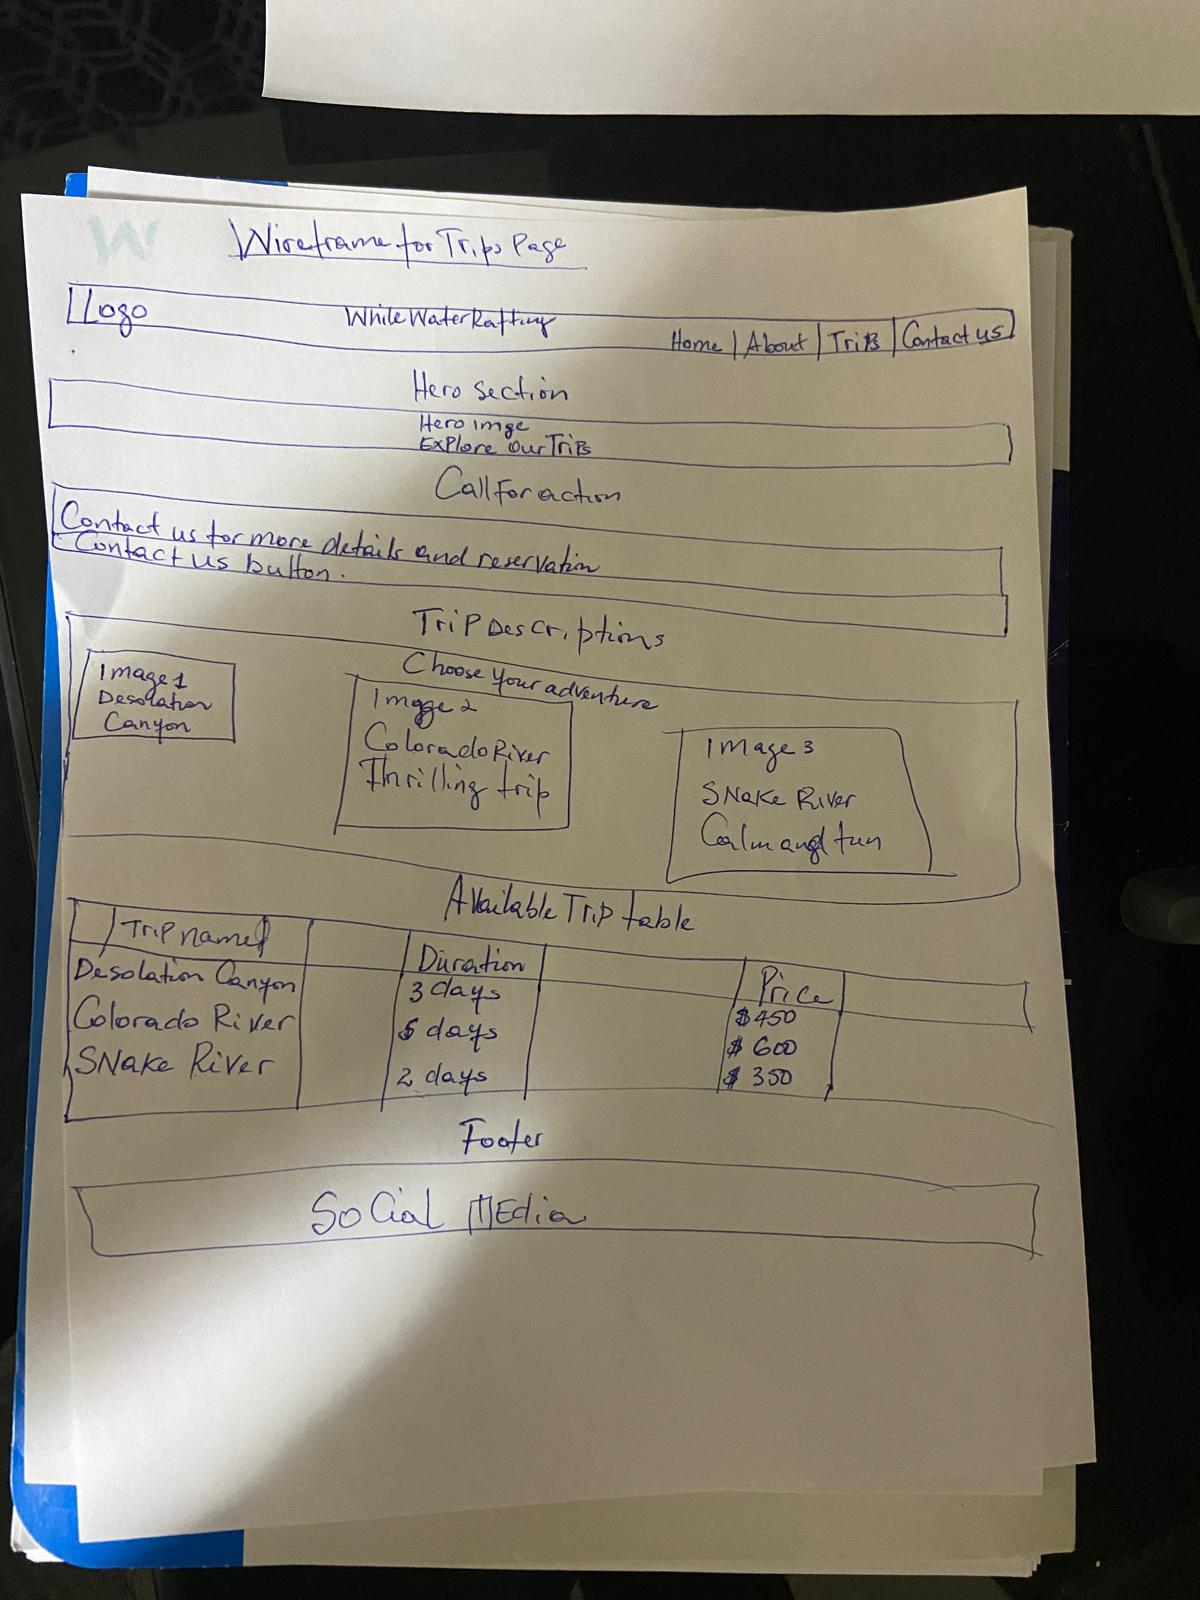 W
Wireframe for Trips Page
Logo
While Water Rafting
Home | About | Trips | Contact us
Hero Section
Hero imge
Explore our Trips
Call For action
Contact us for more details and reservation
Contact us button.
Trip Descriptions
Choose your adventure
Image 1
Desolation
Canyon
Image 2
Colorado River
Thrilling trip
Image 3
SNake River
Calm and fun
Available Trip table
Trip name
Duration
Price
Desolation Canyon
3 days
$450
Colorado River
5 days
$ 600
SNake River
2 days
$ 350
Footer
Social Media